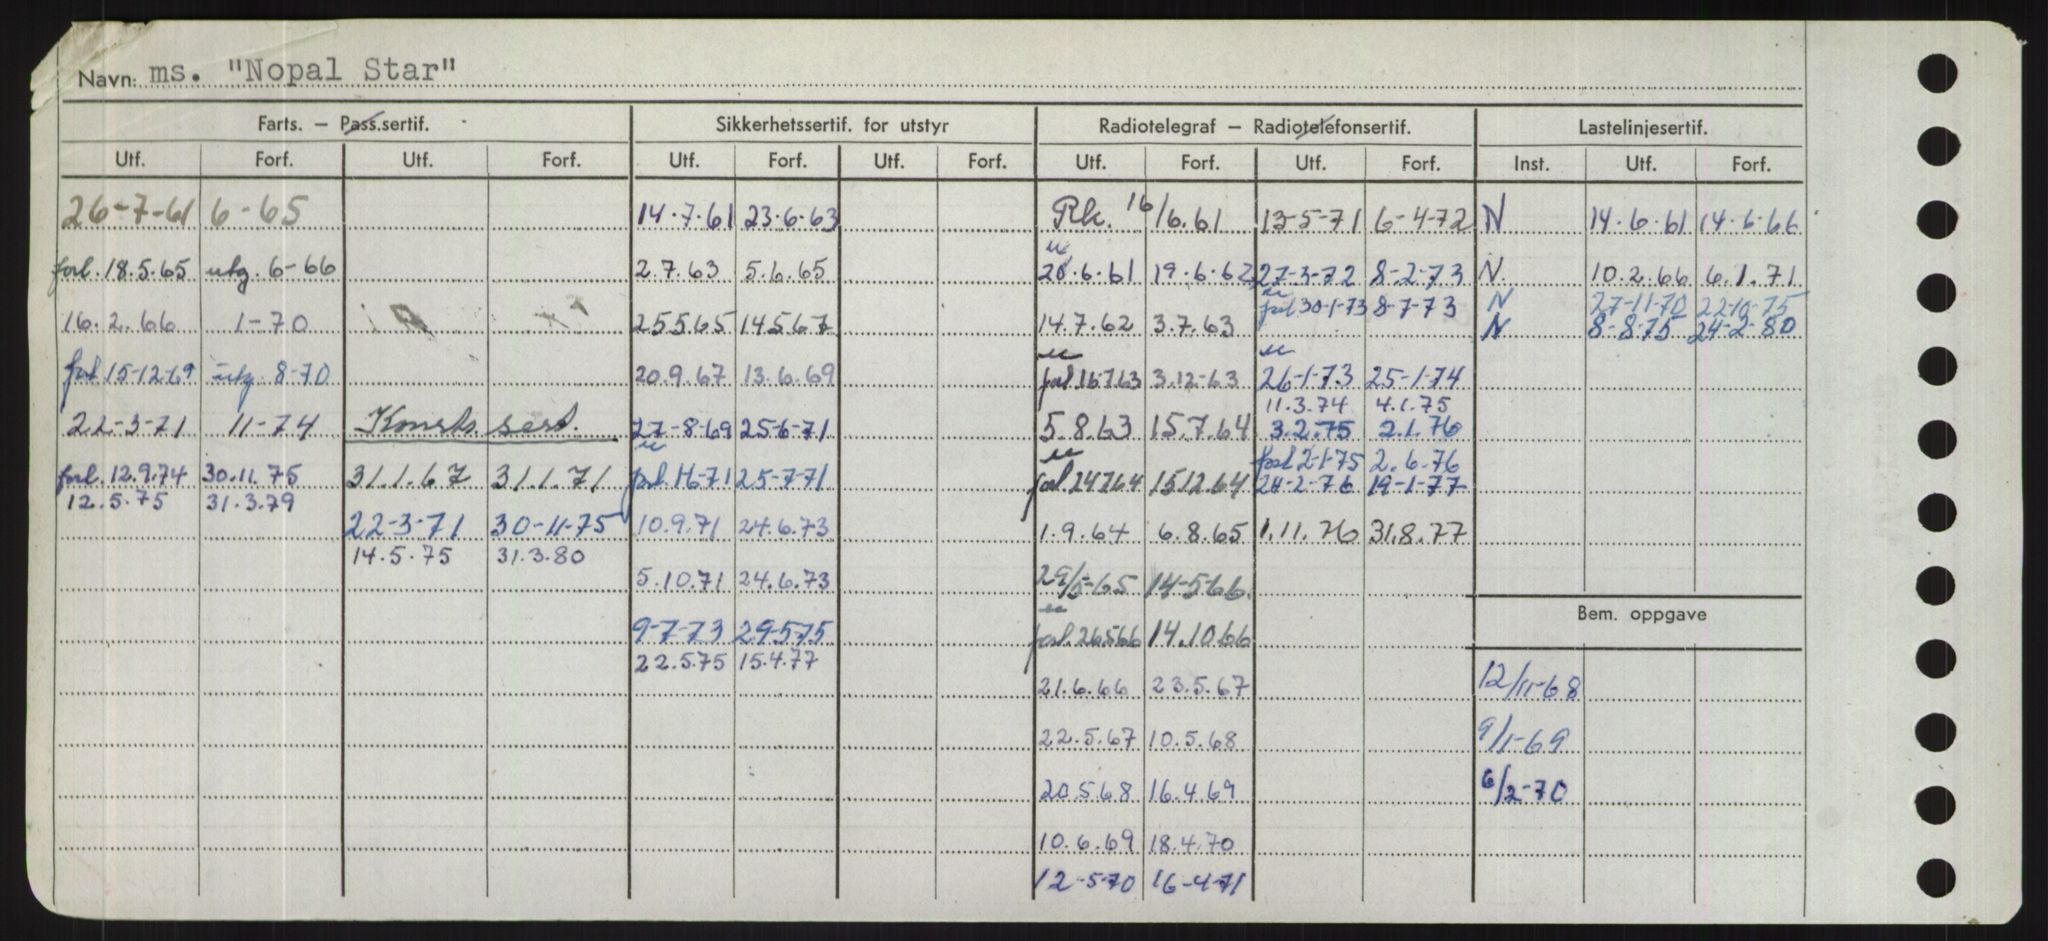 Navn: ms. "Nopal Star"
Farts. – Pass.sertif. Sikkerhetssertif. for utstyr Radiotelegraf – Radiotelefonsertif. Lastelinjesertif.
Utf. Forf. Utf. Forf. Utf. Forf. Utf. Forf. Utf. Forf. Utf. Forf. Inst. Utf. Forf.
26-7-61 6-65 14.7.61 23.6.63 Rk. 16/6.61 13-5-71 6-4-72 N 14.6.61 14.6.66
forl. 18.5.65 utg. 6-66 2.7.63 5.6.65 20.6.61 19.6.62 27-3-72 8-2-73 N. 10.2.66 6.1.71
forl 30-1-73 8-7-73 N 27-11-70 22-10-75
16.2.66 1-70 25565 14567 14.7.62 3.7.63 N 8-8-75 24-2-80
forl 15-12-69 utg. 8-70 20.9.67 13.6.69 forl 16763 3.12-63 26-1-73 25-1-74
11.3.74 4.1.75
22-3-71 11-74 Konstr. sert. 27-8-69 25-6-71 5.8.63 15.7.64 3.2.75 2.1.76
forl 2-1-75 2.6.76
forl. 12.9.74 30.11.75 31.1.67 31.1.71 forl 1-6-71 25-7-71 forl 24764 151264 24-2-76 19-1-77
12.5.75 31.3.79
22-3-71 30-11-75 10.9.71 24.6.73 1.9.64 6.8.65 1.11.76 31.8.77
14.5.75 31.3.80
5.10.71 24.6.73 29/5-65 14-5-66.
Bem. oppgave
9-7-73 29-5-75 forl. 26566 14.10.66
22.5.75 15.4.77
21.6.66 23.5.67 12/11-68
22.5.67 10.5.68 9/1-69
20.5.68 16.4.69 6/2-70
10.6.69 18.4.70
12-5-70 16-4-71